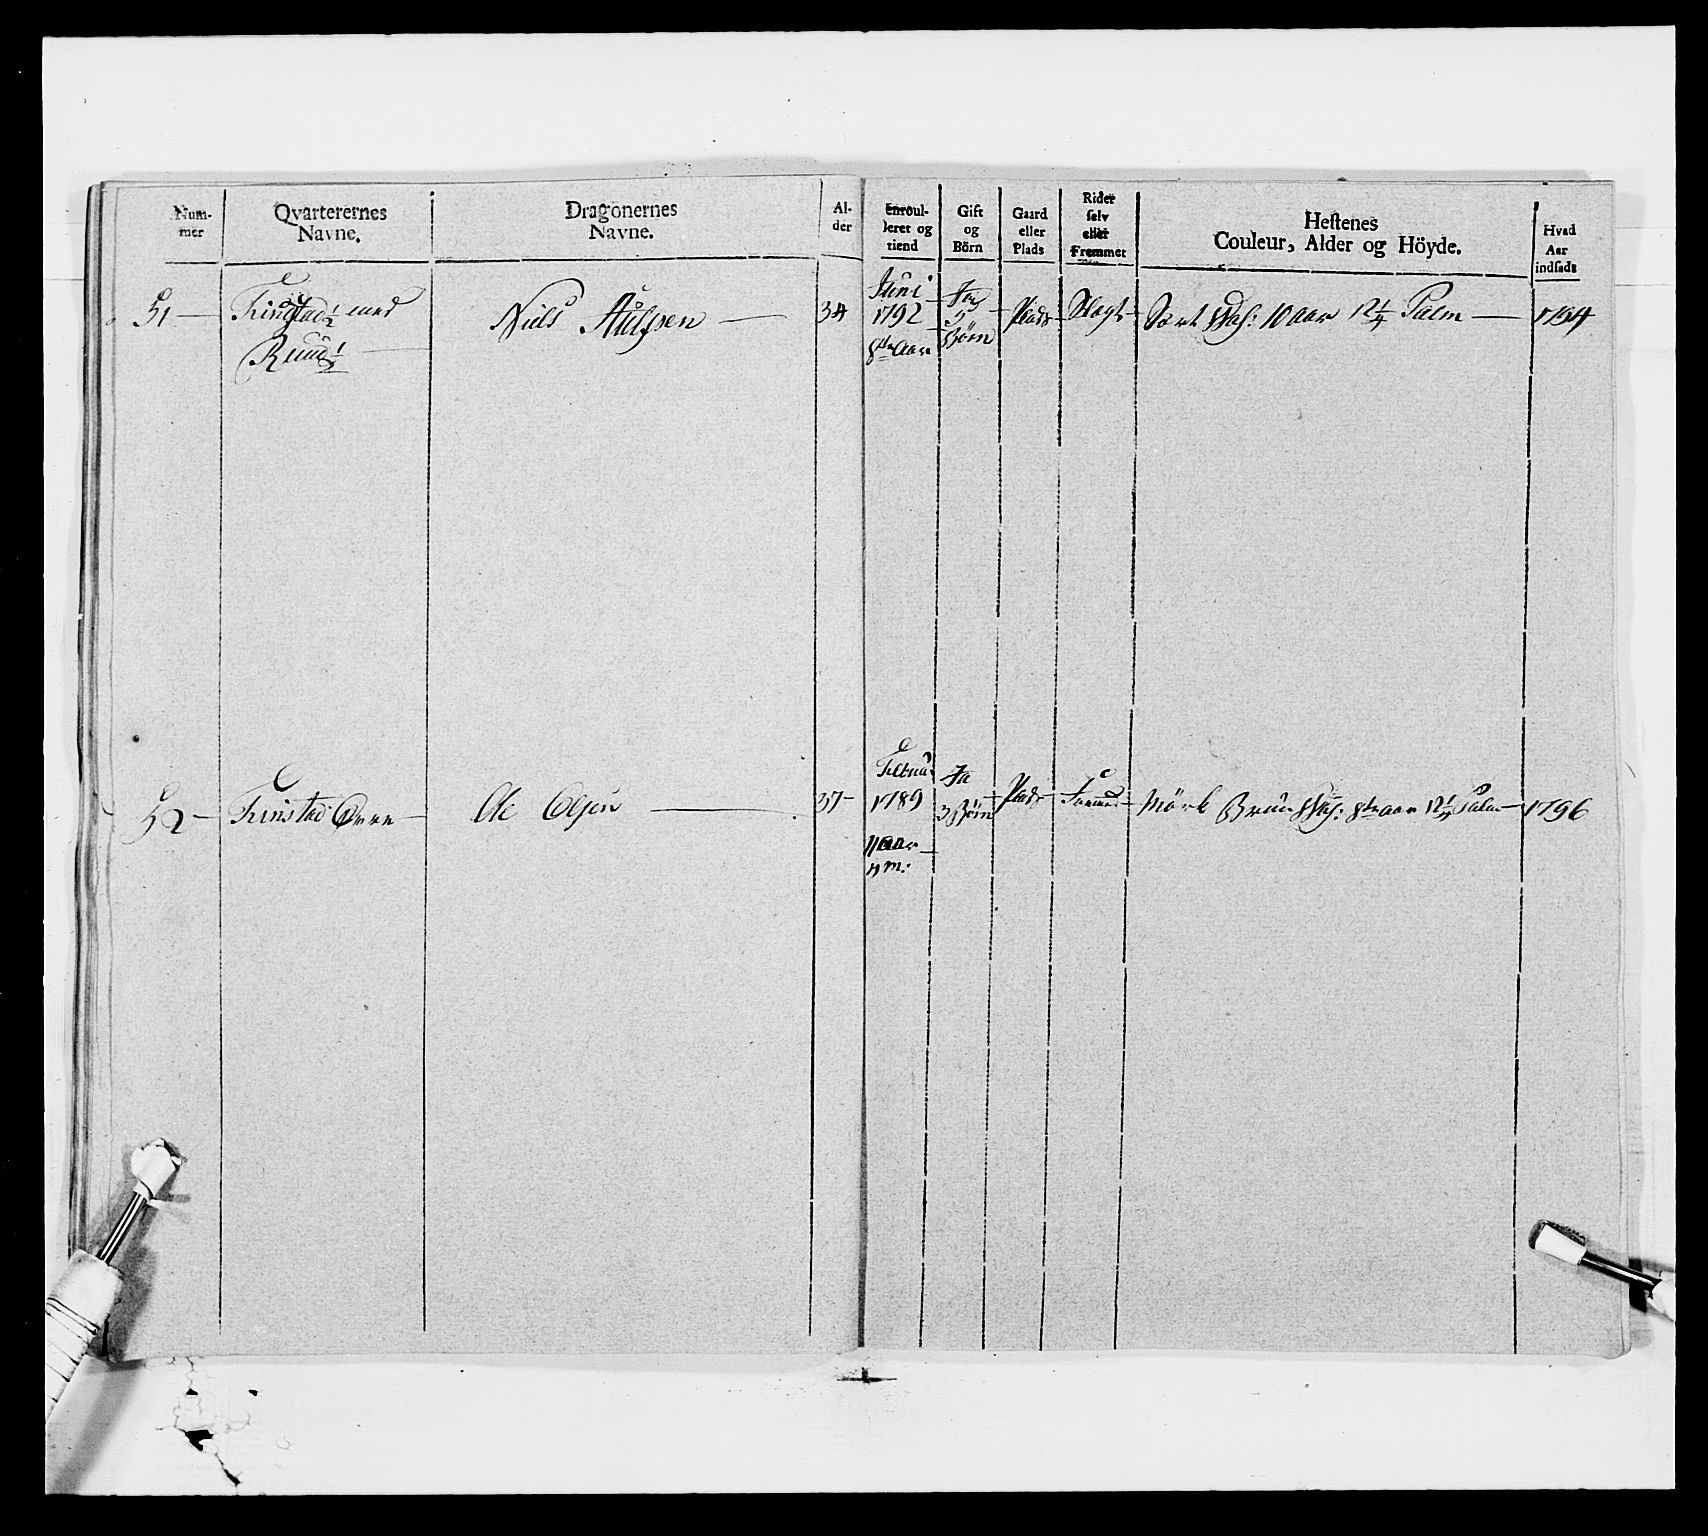 Num-
mer
Qvarterernes
Navne.
Dragonernes
Navne.
Al-
der
Enroul-
leret og
tiend
Gift
og
Börn
Gaard
eller
Plads
Rider
selv
eller
Fremmet
Hestenes
Couleur, Alder og Höyde.
Hvad
Aar
indsads
51 — Finstad ½ med
Ruud ½ —
Niels — 34
Juni
1792
8de Aar
Ja
5
Börn
Plads
Sort 10 aar 12¼ Palm — 1794
52 — Finstad Övre —
Ole Olsen — 37 —
Februar
1789
11 aar
4 m:
Ja
3 Börn
Plads
Fremmed
Mörk Bruun 8te aar 12¼ Palm — 1796